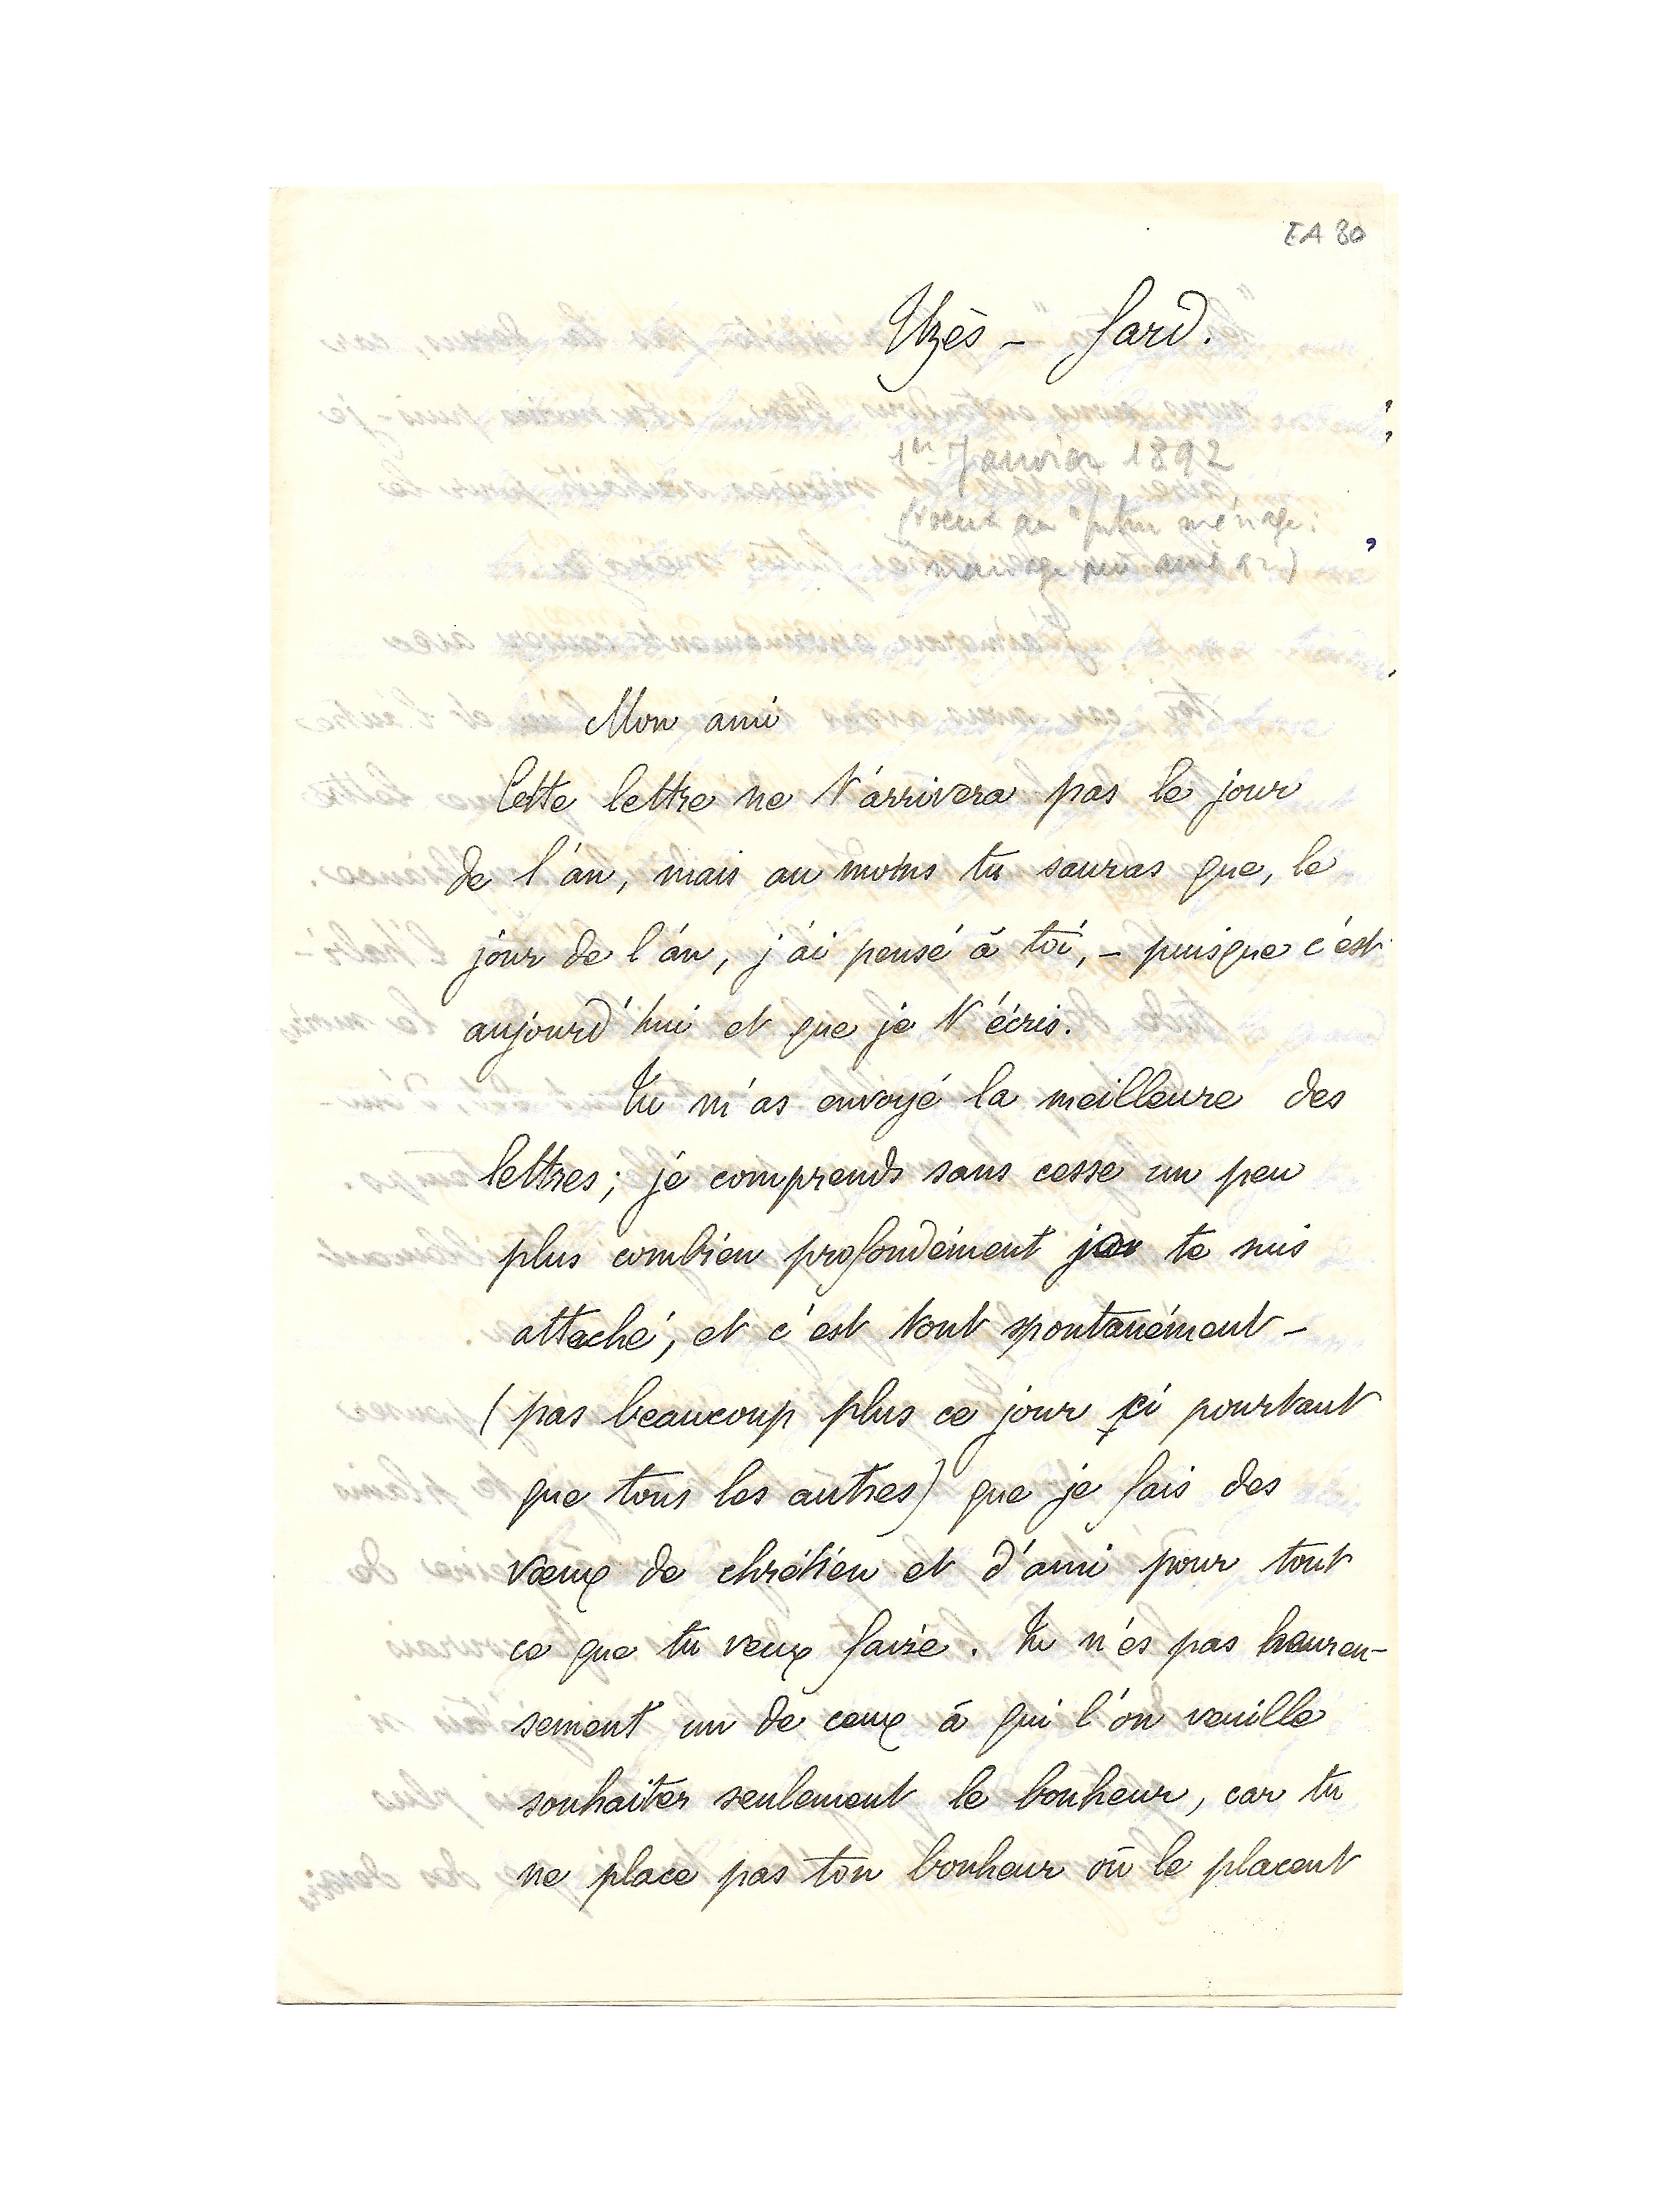 EA 80
Uzès - Gard.
1er Janvier 1892
(voeux au "futur ménage:
mariage mi avril 92)
Mon ami
Cette lettre ne t'arrivera pas le jour
de l'an, mais au moins tu sauras que, le
jour de l'an, j'ai pensé à toi, - puisque c'est
aujourd'hui et que je t'écris.
Tu m'as envoyé la meilleure des
lettres; je comprends sans cesse un peu
plus combien profondément je te suis
attaché, et c'est tout spontanément -
(pas beaucoup plus ce jour ci pourtant
que tous les autres) que je fais des
vœux de chrétien et d'ami pour tout
ce que tu veux faire. Tu n'es pas heureu-
sement un de ceux à qui l'on veuille
souhaiter seulement le bonheur, car tu
ne place pas ton bonheur où le placent